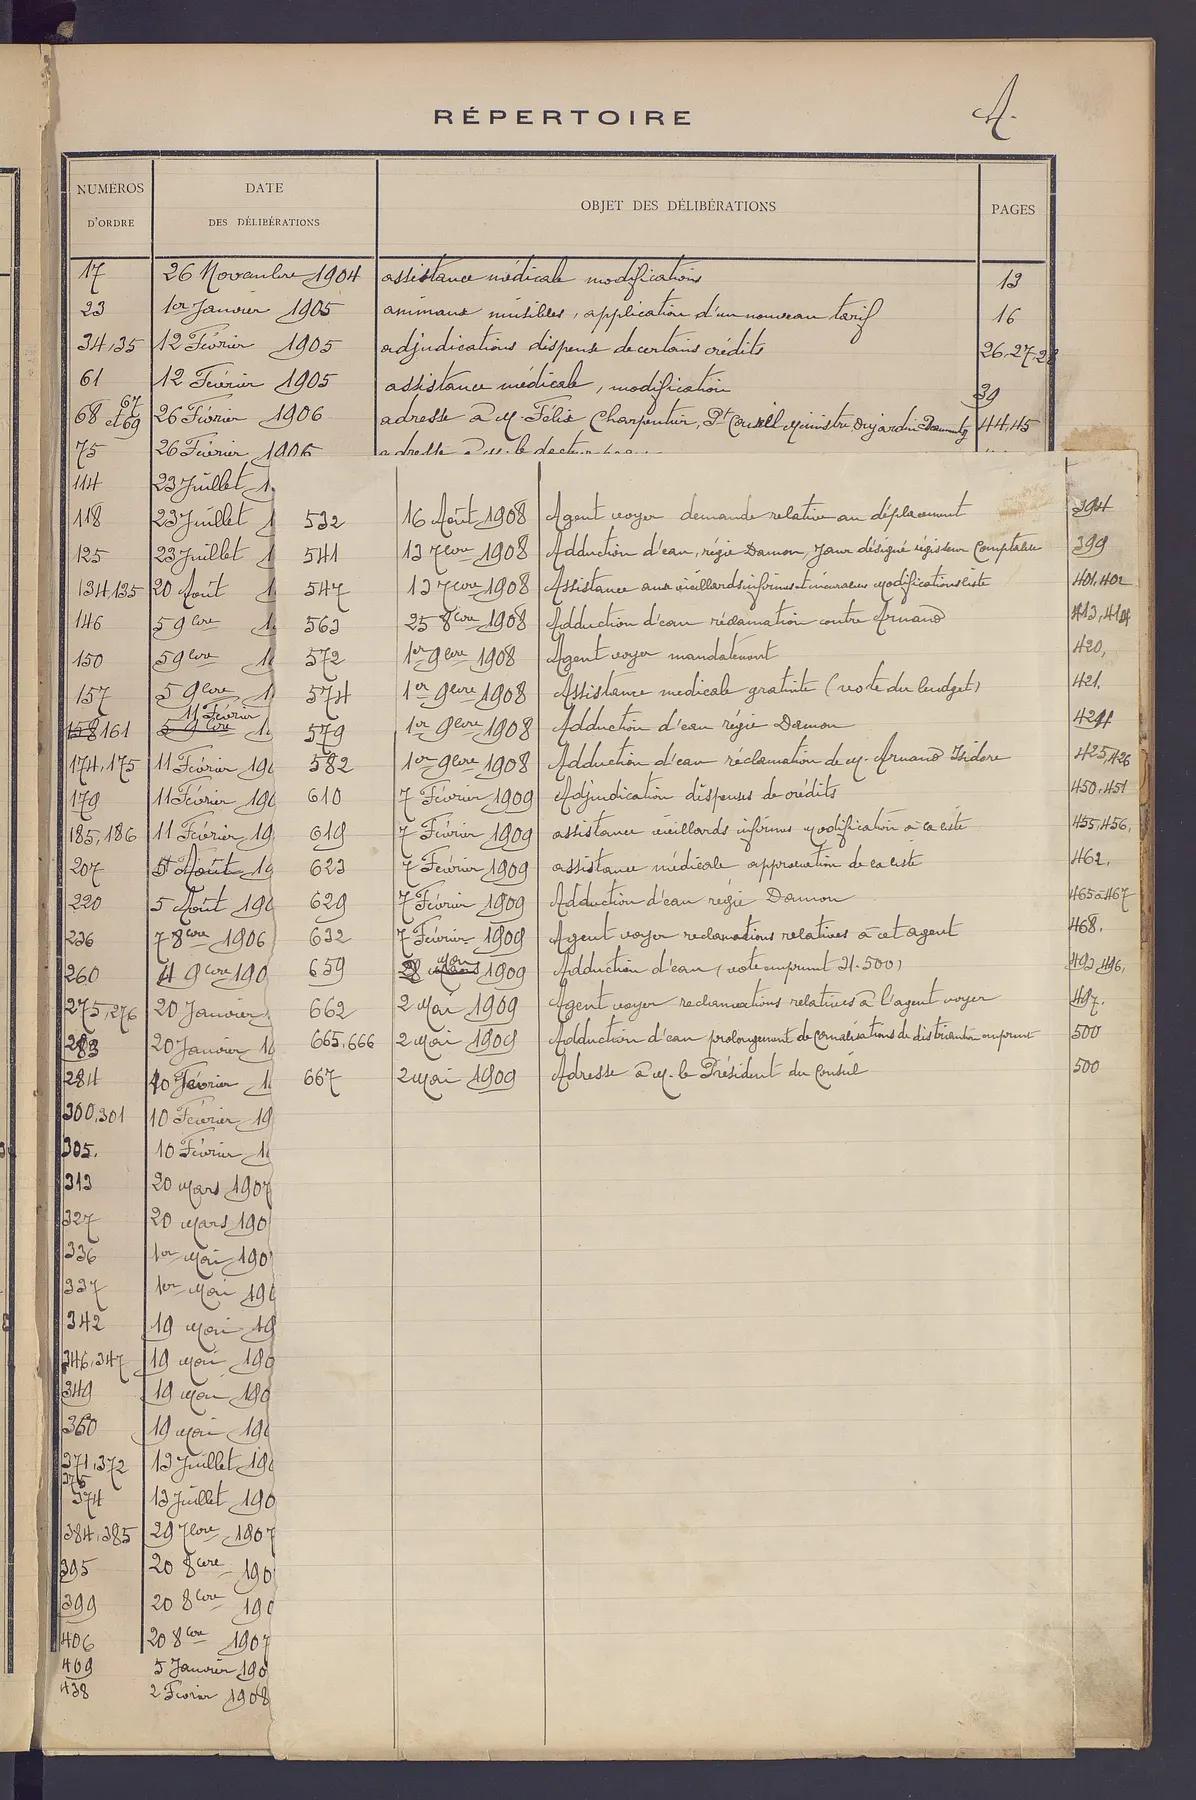 A.
RÉPERTOIRE
NUMÉROS D'ORDRE DATE DES DÉLIBÉRATIONS OBJET DES DÉLIBÉRATIONS PAGES
17 26 Novembre 1904 assistance médicale modifications 13
23 1er Janvier 1905 animaux nuisibles, application d'un nouveau tarif 16
34,35 12 Février 1905 adjudications dispense de certains crédits 26.27.28
61 12 Février 1905 assistance médicale, modification 39
67
68 et 69 26 Février 1906 adresse à M. Félix Charpentier, Pt Conseil Ministre Dujardin Beaumetz 44,45
75 26 Février 1906 adresse à M. le docteur
114 23 Juillet 1
118 23 Juillet 1
125 23 Juillet 1
134,135 20 Août 1
146 5 9bre 1
150 5 9bre 19
157 5 9bre 1
11 Février
158 161 5 9bre 1
174,175 11 Février 190
179 11 Février 190
185,186 11 Février 19
207 5 Août 19
220 5 Août 190
236 7 8bre 1906
260 4 9bre 190
275,276 20 Janvier
283 20 Janvier 19
284 10 Février 1
300,301 10 Février 19
305. 10 Février 1
313 20 Mars 1907
327 20 Mars 190
336 1er Mai 190
337 1er Mai 190
342 19 Mai 19
346,347 19 Mai 190
349 19 Mai 190
360 19 Mai 190
371,372 13 Juillet 190
376
374 13 Juillet 190
384,385 29 7bre 1907
395 20 8bre 190
399 20 8bre 190
406 20 8bre 1907
409 5 Janvier 190
438 2 Février 1908
532 16 Août 1908 Agent voyer demande relative au déplacement 394
541 13 7bre 1908 Adduction d'eau, régie Damon, Jaur désigné régisseur Comptable 399
547 13 7bre 1908 Assistance aux vieillards infirmes et incurables Modifications liste 401,402
563 25 8bre 1908 Adduction d'eau réclamation contre Arnaud 413,414
572 1er 9bre 1908 Agent voyer mandatement 420,
574 1er 9bre 1908 Assistance médicale gratuite (vote du budget) 421.
579 1er 9bre 1908 Adduction d'eau régie Damon 424
582 1er 9bre 1908 Adduction d'eau réclamation de M. Arnaud Isidore 425,426
610 7 Février 1909 Adjudication dispenses de crédits 450,451
619 7 Février 1909 assistance vieillards infirmes Modification à la liste 455,456,
623 7 Février 1909 assistance médicale approbation de la liste 462.
629 7 Février 1909 Adduction d'eau régie Damon 465 à 467
632 7 Février 1909 Agent voyer réclamations relatives à cet agent 468.
659 2 Mai 1909 Adduction d'eau (vote emprunt 21.500) 492,496,
662 2 Mai 1909 Agent voyer réclamations relatives à l'agent voyer 497.
665,666 2 Mai 1909 Adduction d'eau prolongement de canalisations de distribution emprunt 500
667 2 Mai 1909 Adresse à M. le Président du Conseil 500